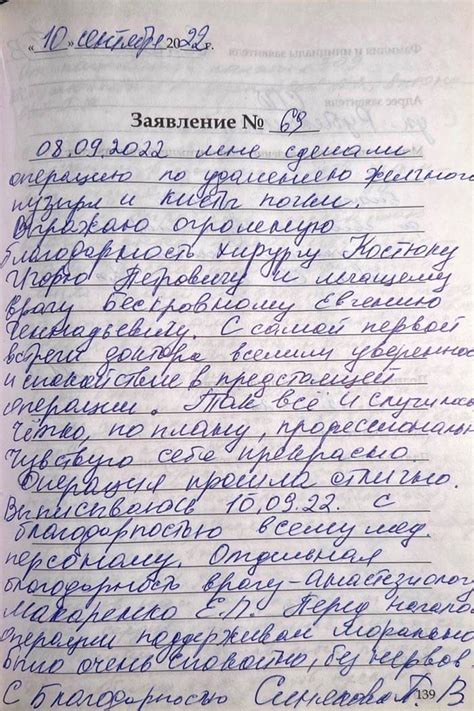 « 10 » сентября 2022 г.
Заявление № 63
08.09.2022 мне сделали
операцию по удалению желчного
пузыря и кисты почки.
Выражаю огромную
благодарность хирургу Костюку
Игорю Петровичу и лечащему
врачу Бескровному Евгению
Геннадьевичу. С самой первой
встречи доктора вселили увереннос
и спокойствие в предстоящей
операции. Так всё и случилось
Чётко, по плану, профессиональн
Чувствую себя прекрасно.
Операция прошла отлично.
Выписываюсь 10.09.22. С
благодарностью всему мед.
персоналу. Отдельная
благодарность врачу-анастезиолог
Макаренко Е.П. Перед начало
операции поддерживал морально
было очень спокойно, без нервов
С благодарностью Синякова Т. В
139